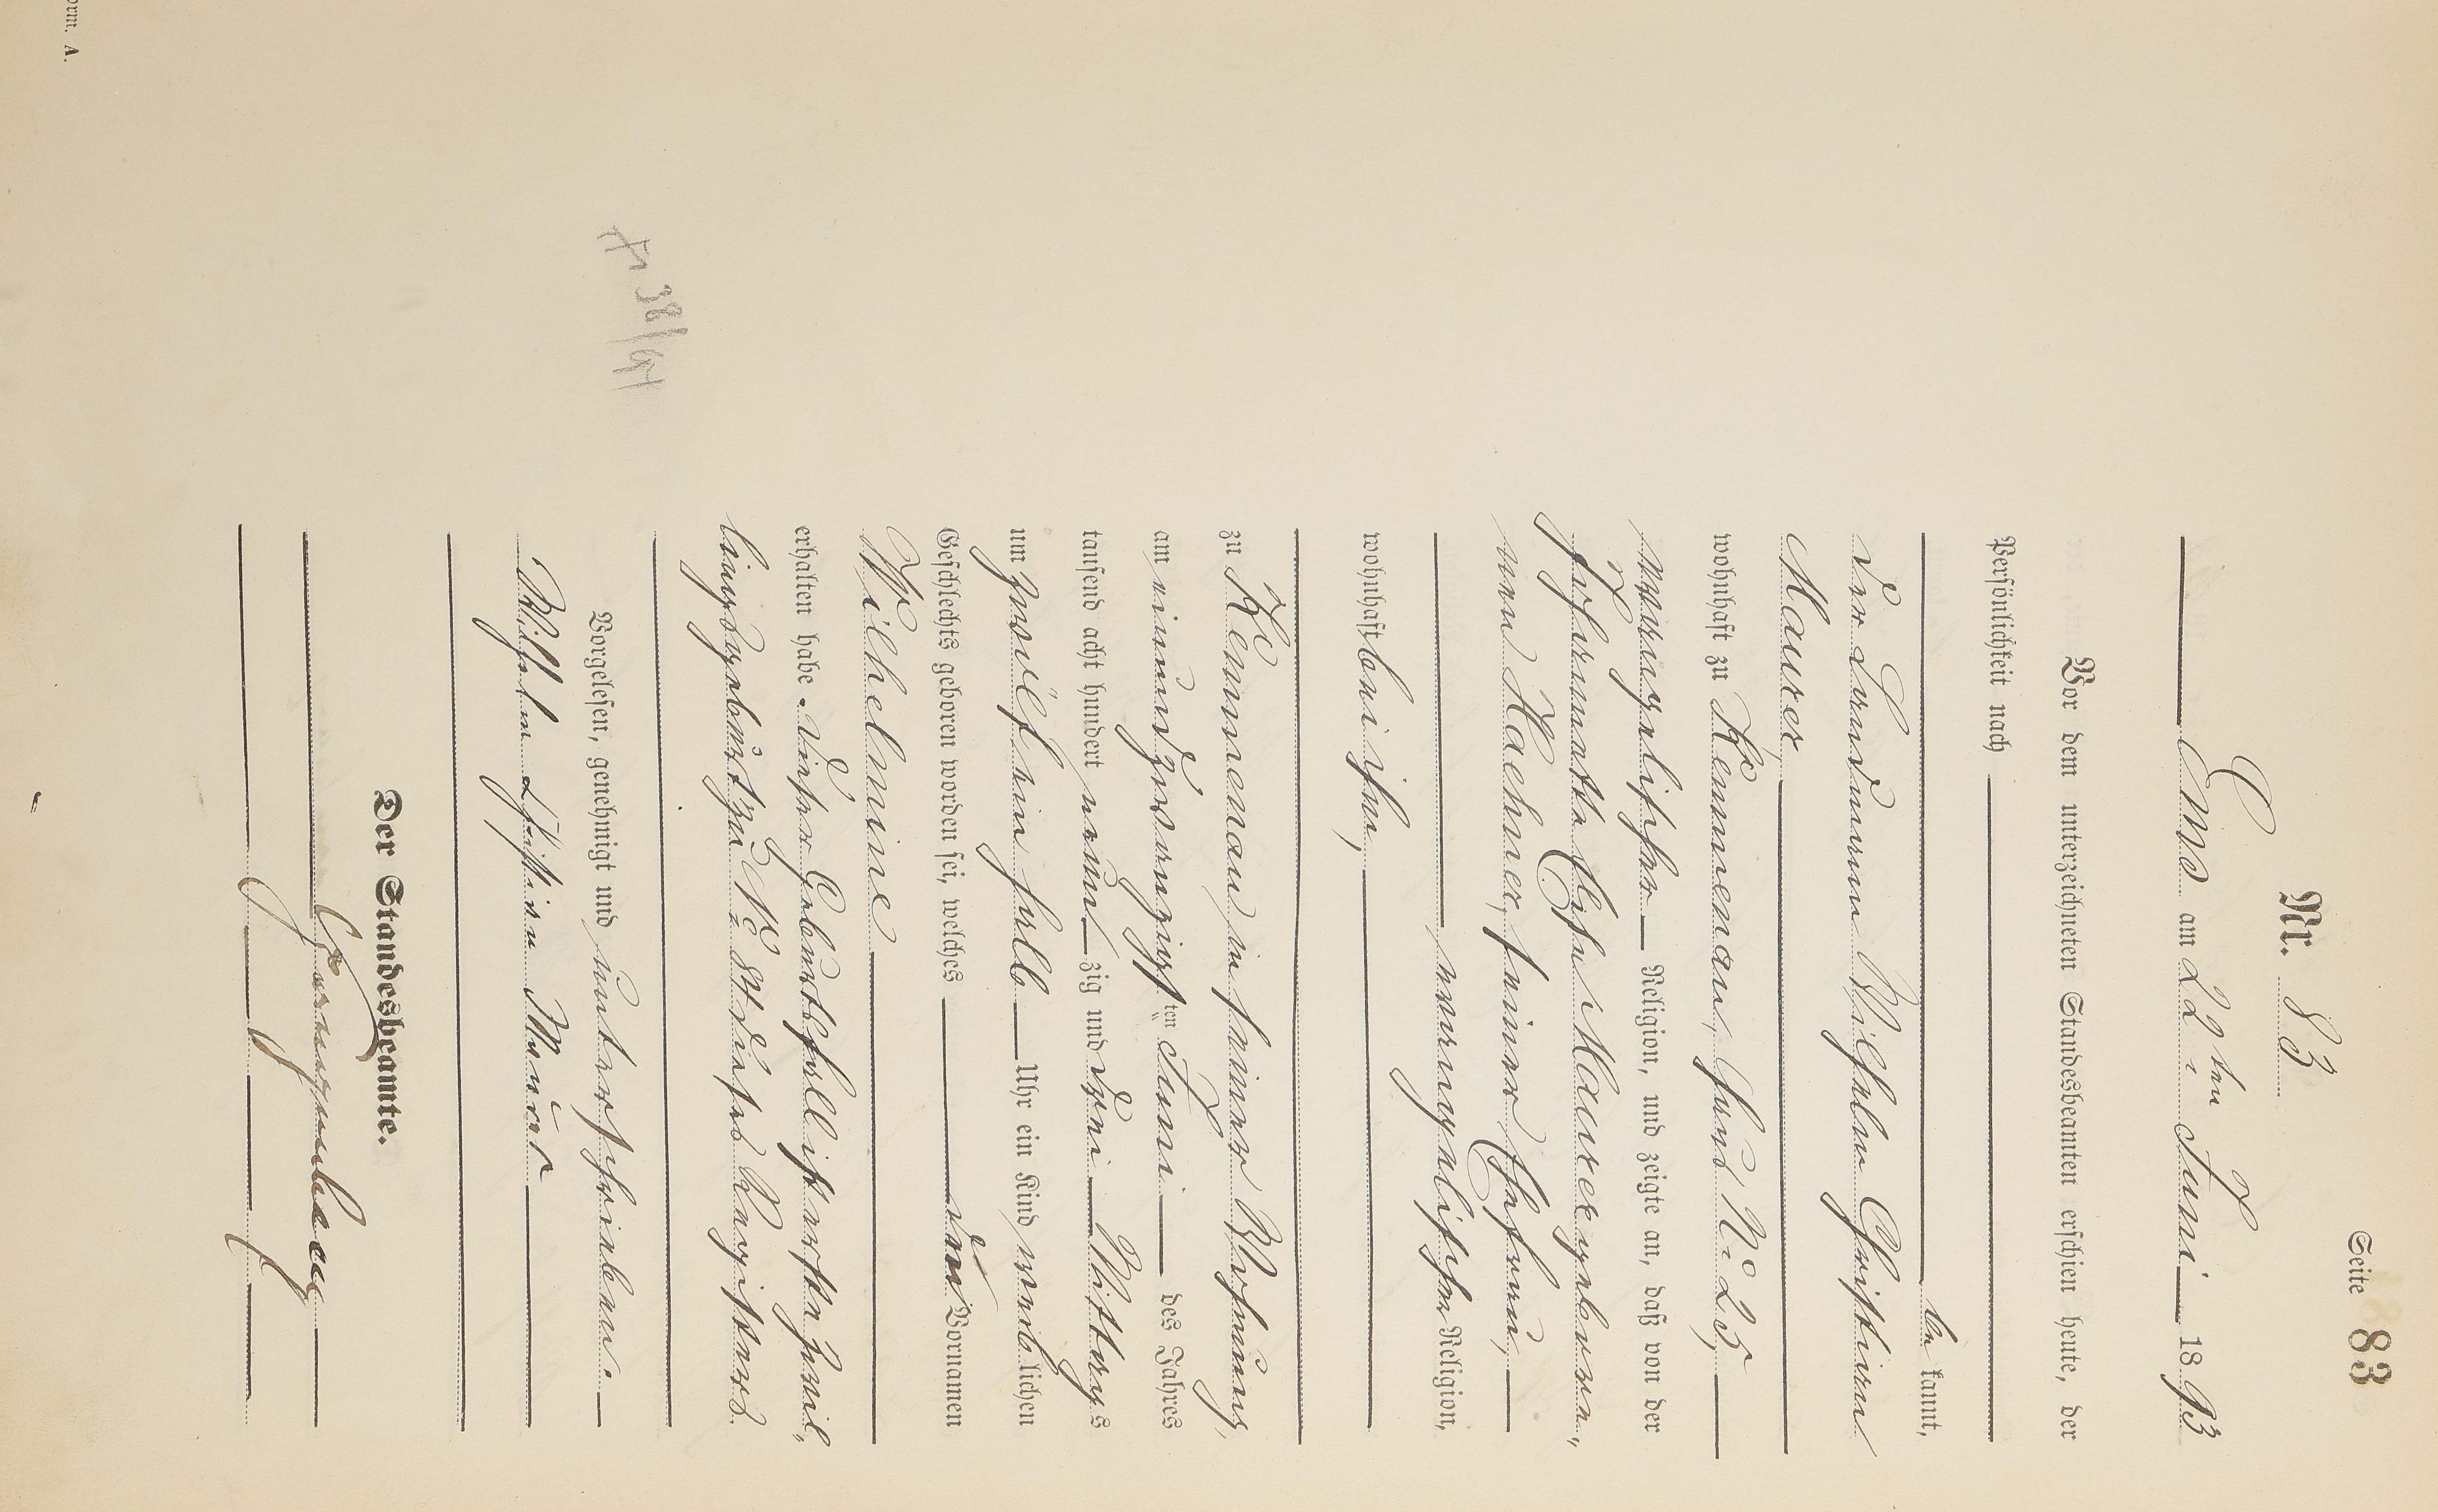 Seite 83
Nr. 83
Ems am 22ten Juni 1893
Vor dem unterzeichneten Standesbeamten erschien heute, der
Persönlichkeit nach
be kannt,
der Wilhelm Christian
Maurer
wohnhaft zu Kemmenau, Haus No 25,
evangelischer Religion, und zeigte an, daß von der
Ehe Maurer gebore„
nen Maehner, seiner Ehefrau,
evangelischer Religion,
wohnhaft bei ihm,
zu Kemmenau in seiner Wohnung,
am einundzwanzigsten Juni des Jahres
tausend acht hundert neun zig und drei Mittags
um zwölf ein halb Uhr ein Kind weiblichen
Geschlechts geboren worden sei, welches den Vornamen
Wilhelmine
erhalten habe. Dieser Geburtsfall ist erste Zwil„
lingsgeburt zu No 84 dieses Registers.
Vorgelesen, genehmigt und unterschrieben.
Wilhelm Christian Maurer
Der Standesbeamte.
38/61
orm. A.